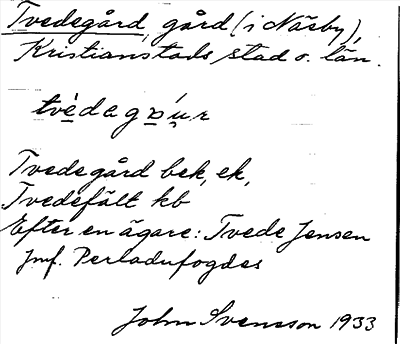 Tvedegård, gård (i Näsby),
Kristianstads stad o. län.
tvèdagɒ́u̯r
Tvedegård bek, ek,
Tvedefält kb
Efter en ägare: Tvede Jensen
Jmf. Perladufogdes
John Svensson 1933